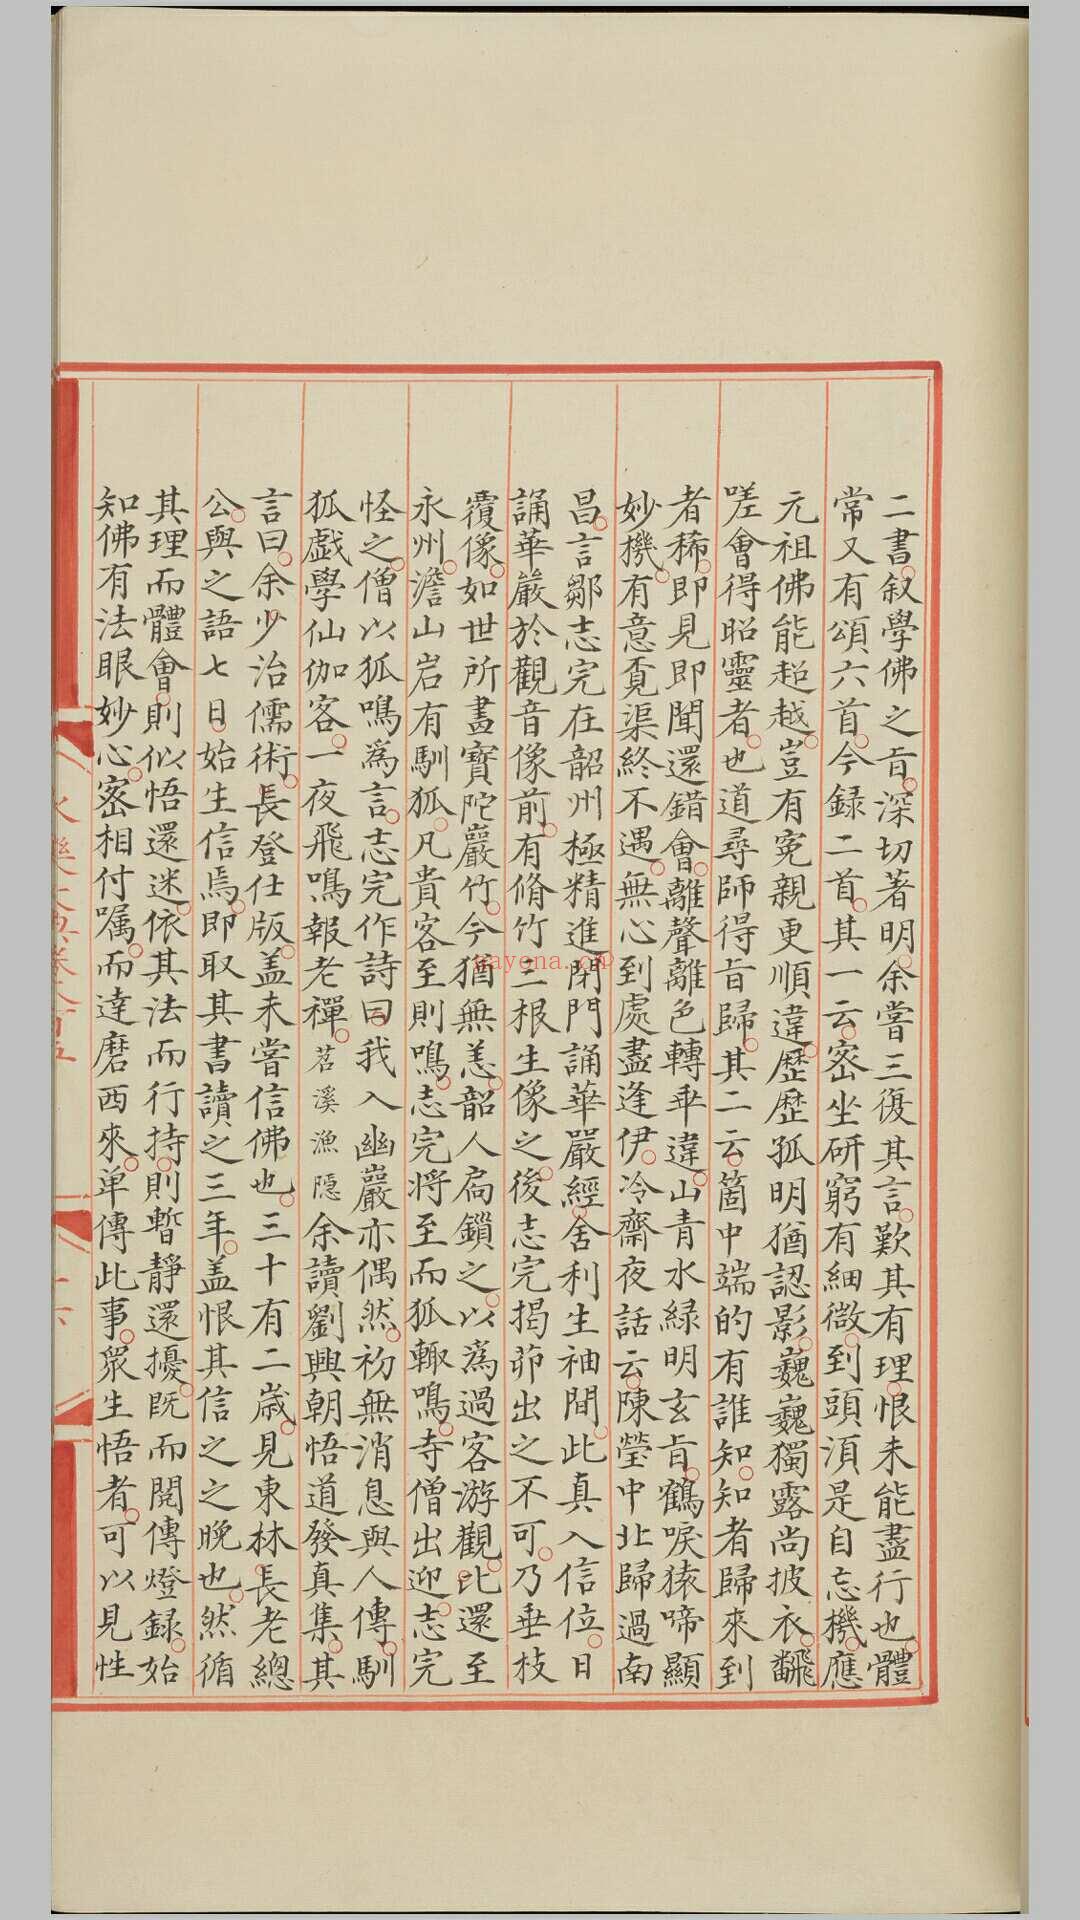 二書叙學佛之旨深切著明余嘗三復其言歎其有理恨未能盡行也體
常又有頌六首今録二首其一云宻坐研窮有細微到頭須是自忘機應
元祖佛能超越豈有冤親更順違歷歷孤明猶認影巍巍獨露尚披衣飜
嗟會得昭靈者也道尋師得旨歸其二云箇中端的有誰知知者歸來到
者稀即見即聞還錯會離聲離色轉乖違山青水緑明玄旨鶴唳猿啼顯
妙機有意覔渠終不遇無心到處盡逢伊冷齋夜話云陳瑩中北歸過南
昌言鄒志完在韶州極精進閉門誦華嚴經舍利生袖間此真入信位日
誦華嚴於觀音像前有脩竹三根生像之後志完揭茆出之不可乃垂枝
覆像如世所畫寶陀巖竹今猶無恙韶人扃鎖之以為過客游觀比還至
永州澹山岩有馴狐凡貴客至則鳴志完将至而狐輙鳴寺僧出迎志完
怪之僧以狐鳴為言志完作詩曰我入幽巖亦偶然初無消息與人傳馴
狐戯學仙伽客一夜飛鳴報老禪苕溪漁隠余讀劉興朝悟道發真集其
言曰余少治儒術長登仕版盖未嘗信佛也三十有二嵗見東林長老總
公與之語七日始生信焉即取其書讀之三年盖恨其信之之晚也然循
其理而體會則似悟還迷依其法而行持則暫靜還擾既而閲傳燈録始
知佛有法眼妙心宻相付囑而達磨西來单傳此事衆生悟者可以見性